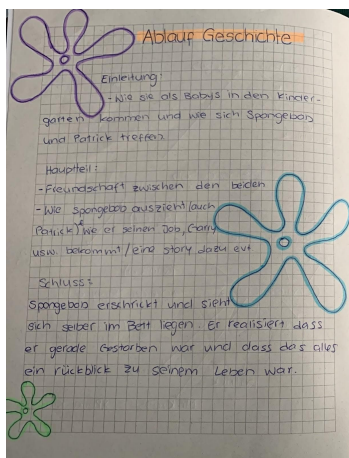 Ablauf Geschichte
Einleitung:
-Wie sie als Babys in den Kinder-
garten kommen und wie sich Spongebob
und Patrick treffen
Hauptteil:
-Freundschaft zwischen den beiden
-Wie Spongebob auszieht (auch
Patrick) we er seinen Job, Garry
usw. bekommt/eine story dazu evt
Schluss:
Spongebob erschrickt und sieht
sich selber im Bett liegen. Er realisiert dass
er gerade Gestorben war und dass das alles
ein rückblick zu seinem Leben war.